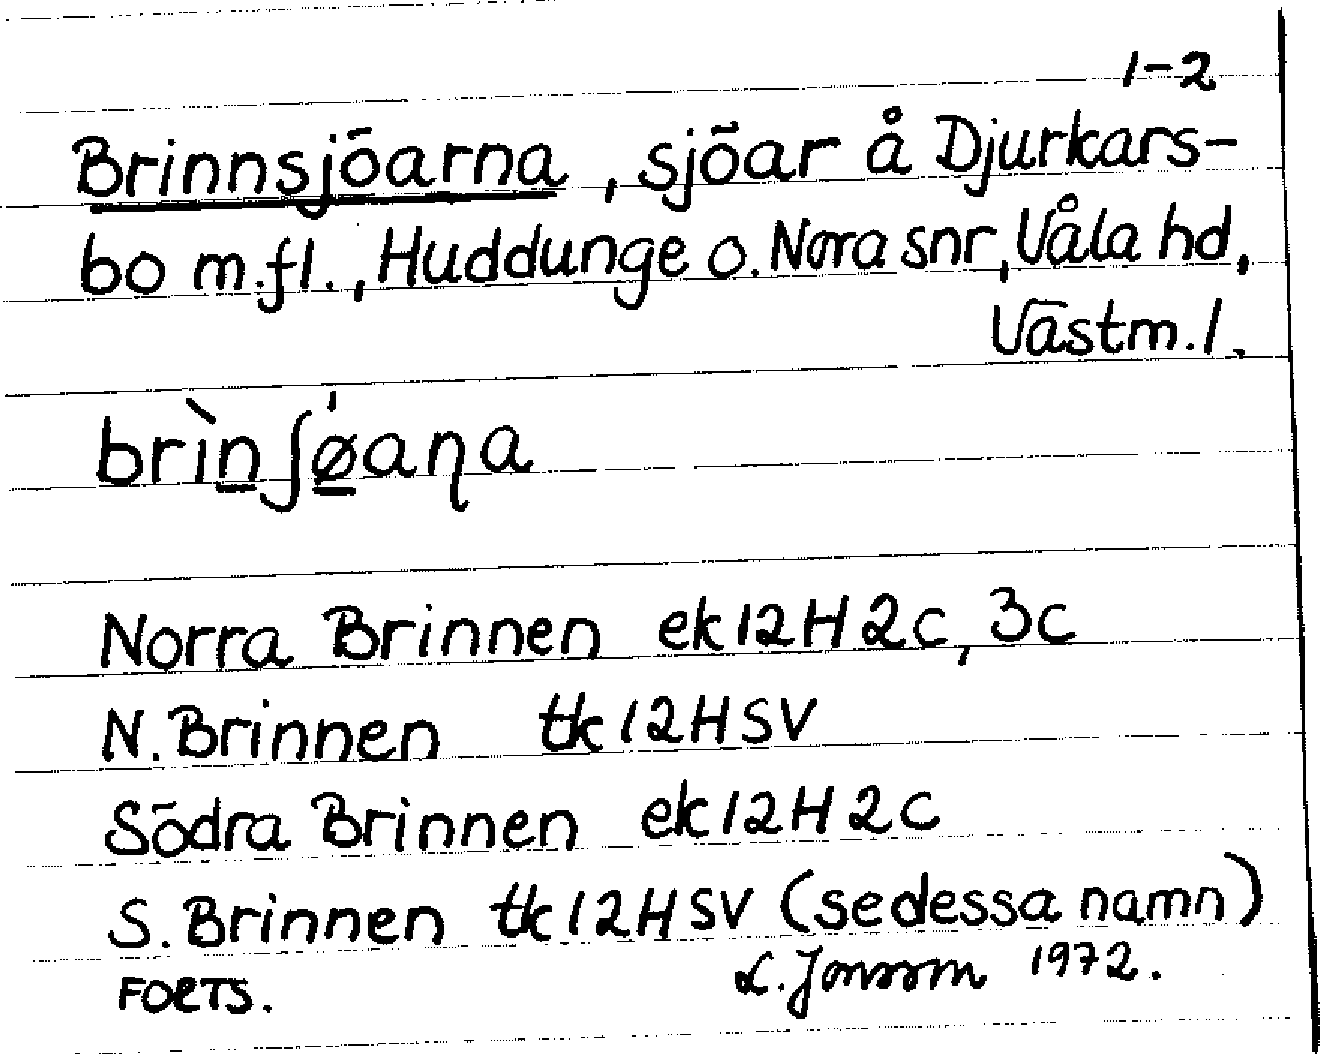 1-2
Brinnsjöarna, sjöar å Djurkars-
bo m.fl., Huddunge o. Nora snr, Våla hd,
Västm.l.
brìn̲ʃǿ̲aɳa
Norra Brinnen ek 12H 2c, 3c
N. Brinnen tk 12HSV
Södra Brinnen ek 12H 2c
S. Brinnen tk 12HSV (se dessa namn)
FORTS. L. Jonsson 1972.